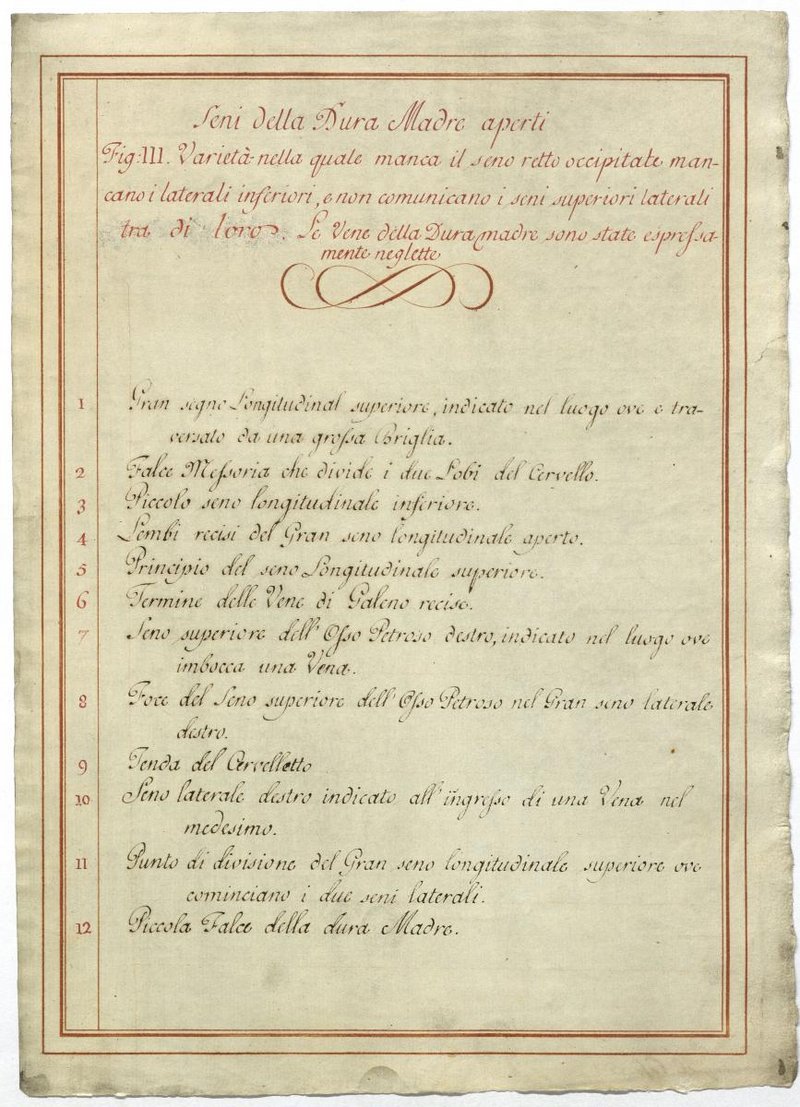 Seni della Dura Madre aperti
Fig: III. Varietà nella quale manca il seno retto occipitate man-
cano i laterali inferiori, e non comunicano i seni superiori laterali
tra di loro. Le Vene della Dura madre sono state espressa
mente neglette
1 Gran segno Longitudinal superiore, indicato nel luogo ove e tra-
versato da una grossa Briglia.
2 Falce Messoria che divide i due Lobi del Cervello.
3 Piccolo seno longitudinale inferiore.
4 Lembi recisi del Gran seno longitudinale aperto.
5 Principio del seno Longitudinale superiore.
6 Termine delle Vene di Galeno recise.
7 Seno superiore dell' Osso Petroso destro, indicato nel luogo ove
imbocca una Vena.
8 Foce del Seno superiore dell' Osso Petroso nel Gran seno laterale
destro.
9 Tenda del Cervelletto
10 Seno laterale destro indicato all' ingresso di una Vena nel
medesimo.
11 Punto di divisione del Gran seno longitudinale superiore ove
cominciano i due seni laterali.
12 Piccola Falce della dura Madre.